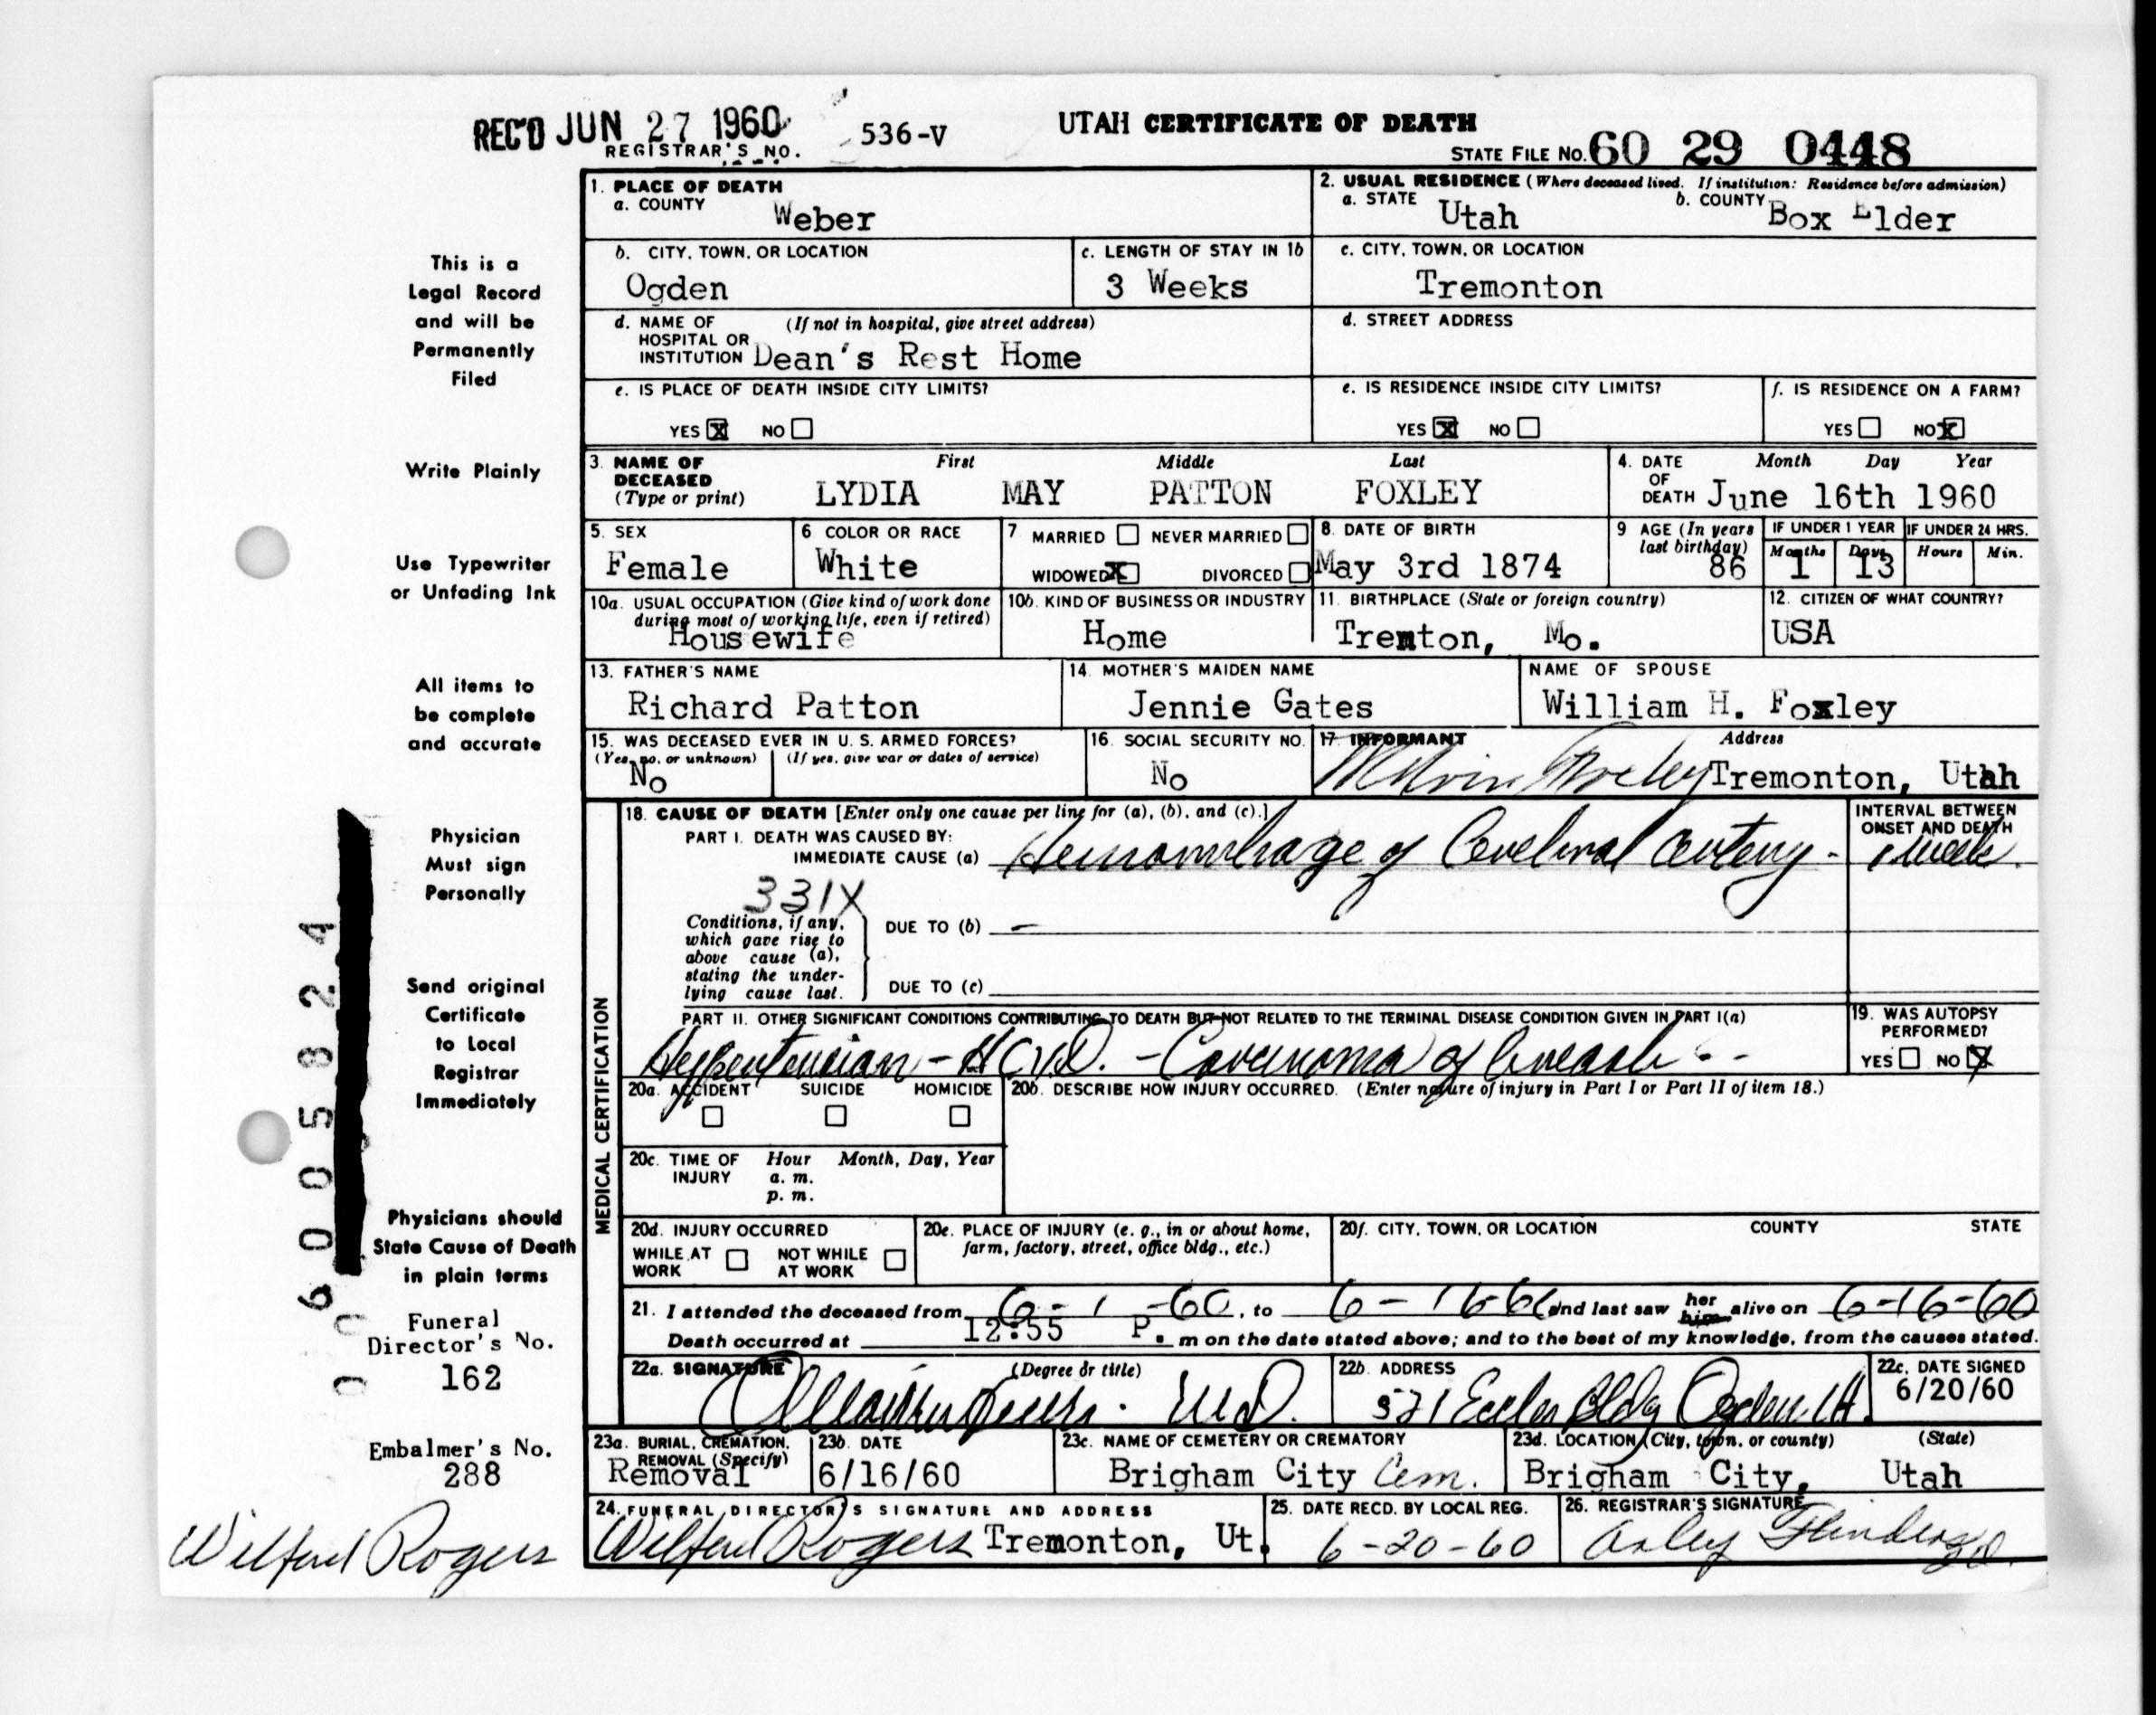 REC'D JUN 27 1960
REGISTRAR'S NO. 536-V
UTAH CERTIFICATE OF DEATH
STATE FILE NO. 60 29 0448
This is a
Legal Record
and will be
Permanently
Filed
Write Plainly
Use Typewriter
or Unfading Ink
All items to
be complete
and accurate
Physician
Must sign
Personally
Send original
Certificate
to Local
Registrar
Immediately
Physicians should
State Cause of Death
in plain terms
Funeral
Director's No.
162
Embalmer's No.
288
Wilford Rogers
1. PLACE OF DEATH
a. COUNTY Weber
2. USUAL RESIDENCE (Where deceased lived. If institution: Residence before admission)
a. STATE Utah b. COUNTY Box Elder
b. CITY, TOWN, OR LOCATION
Ogden
c. LENGTH OF STAY IN 1b
3 Weeks
c. CITY, TOWN, OR LOCATION
Tremonton
d. NAME OF (If not in hospital, give street address)
HOSPITAL OR
INSTITUTION Dean's Rest Home
d. STREET ADDRESS
e. IS PLACE OF DEATH INSIDE CITY LIMITS?
YES X NO
e. IS RESIDENCE INSIDE CITY LIMITS?
YES X NO
f. IS RESIDENCE ON A FARM?
YES NO X
3. NAME OF First Middle Last
DECEASED
(Type or print) LYDIA MAY PATTON FOXLEY
4. DATE Month Day Year
OF
DEATH June 16th 1960
5. SEX
Female
6 COLOR OR RACE
White
7 MARRIED NEVER MARRIED
WIDOWED X DIVORCED
8. DATE OF BIRTH
May 3rd 1874
9 AGE (In years
last birthday)
86
IF UNDER 1 YEAR
Months Days
1 13
IF UNDER 24 HRS.
Hours Min.
10a. USUAL OCCUPATION (Give kind of work done
during most of working life, even if retired)
Housewife
10b. KIND OF BUSINESS OR INDUSTRY
Home
11. BIRTHPLACE (State or foreign country)
Tremton, Mo.
12. CITIZEN OF WHAT COUNTRY?
USA
13. FATHER'S NAME
Richard Patton
14. MOTHER'S MAIDEN NAME
Jennie Gates
NAME OF SPOUSE
William H. Foxley
15. WAS DECEASED EVER IN U. S. ARMED FORCES?
(Yes, no, or unknown) (If yes, give war or dates of service)
No
16. SOCIAL SECURITY NO.
No
17. INFORMANT Address
Melvin Foxley Tremonton, Utah
MEDICAL CERTIFICATION
18. CAUSE OF DEATH [Enter only one cause per line for (a), (b), and (c).]
PART I. DEATH WAS CAUSED BY:
IMMEDIATE CAUSE (a) Hemorrhage of Cerebral artery -
INTERVAL BETWEEN
ONSET AND DEATH
1 week
331X
Conditions, if any,
which gave rise to
above cause (a),
stating the under-
lying cause last.
DUE TO (b) —
DUE TO (c)
PART II. OTHER SIGNIFICANT CONDITIONS CONTRIBUTING TO DEATH BUT NOT RELATED TO THE TERMINAL DISEASE CONDITION GIVEN IN PART I(a)
Hypertension - HCVD. - Carcinoma of breast - -
19. WAS AUTOPSY
PERFORMED?
YES NO X
20a. ACCIDENT SUICIDE HOMICIDE
20b. DESCRIBE HOW INJURY OCCURRED. (Enter nature of injury in Part I or Part II of item 18.)
20c. TIME OF Hour Month, Day, Year
INJURY a. m.
p. m.
20d. INJURY OCCURRED
WHILE AT WORK NOT WHILE AT WORK
20e. PLACE OF INJURY (e. g., in or about home,
farm, factory, street, office bldg., etc.)
20f. CITY, TOWN, OR LOCATION COUNTY STATE
21. I attended the deceased from 6-1-60, to 6-16-60 and last saw her him alive on 6-16-60
Death occurred at 12:55 P. m on the date stated above; and to the best of my knowledge, from the causes stated.
22a. SIGNATURE (Degree or title)
M.D.
22b. ADDRESS
521 Eccles Bldg Ogden Ut.
22c. DATE SIGNED
6/20/60
23a. BURIAL, CREMATION,
REMOVAL (Specify)
Removal
23b. DATE
6/16/60
23c. NAME OF CEMETERY OR CREMATORY
Brigham City Cem.
23d. LOCATION (City, town, or county) (State)
Brigham City, Utah
24. FUNERAL DIRECTOR'S SIGNATURE AND ADDRESS
Wilford Rogers Tremonton, Ut.
25. DATE RECD. BY LOCAL REG.
6-20-60
26. REGISTRAR'S SIGNATURE
Flinders
0 0 6 0 0 5 8 2 4